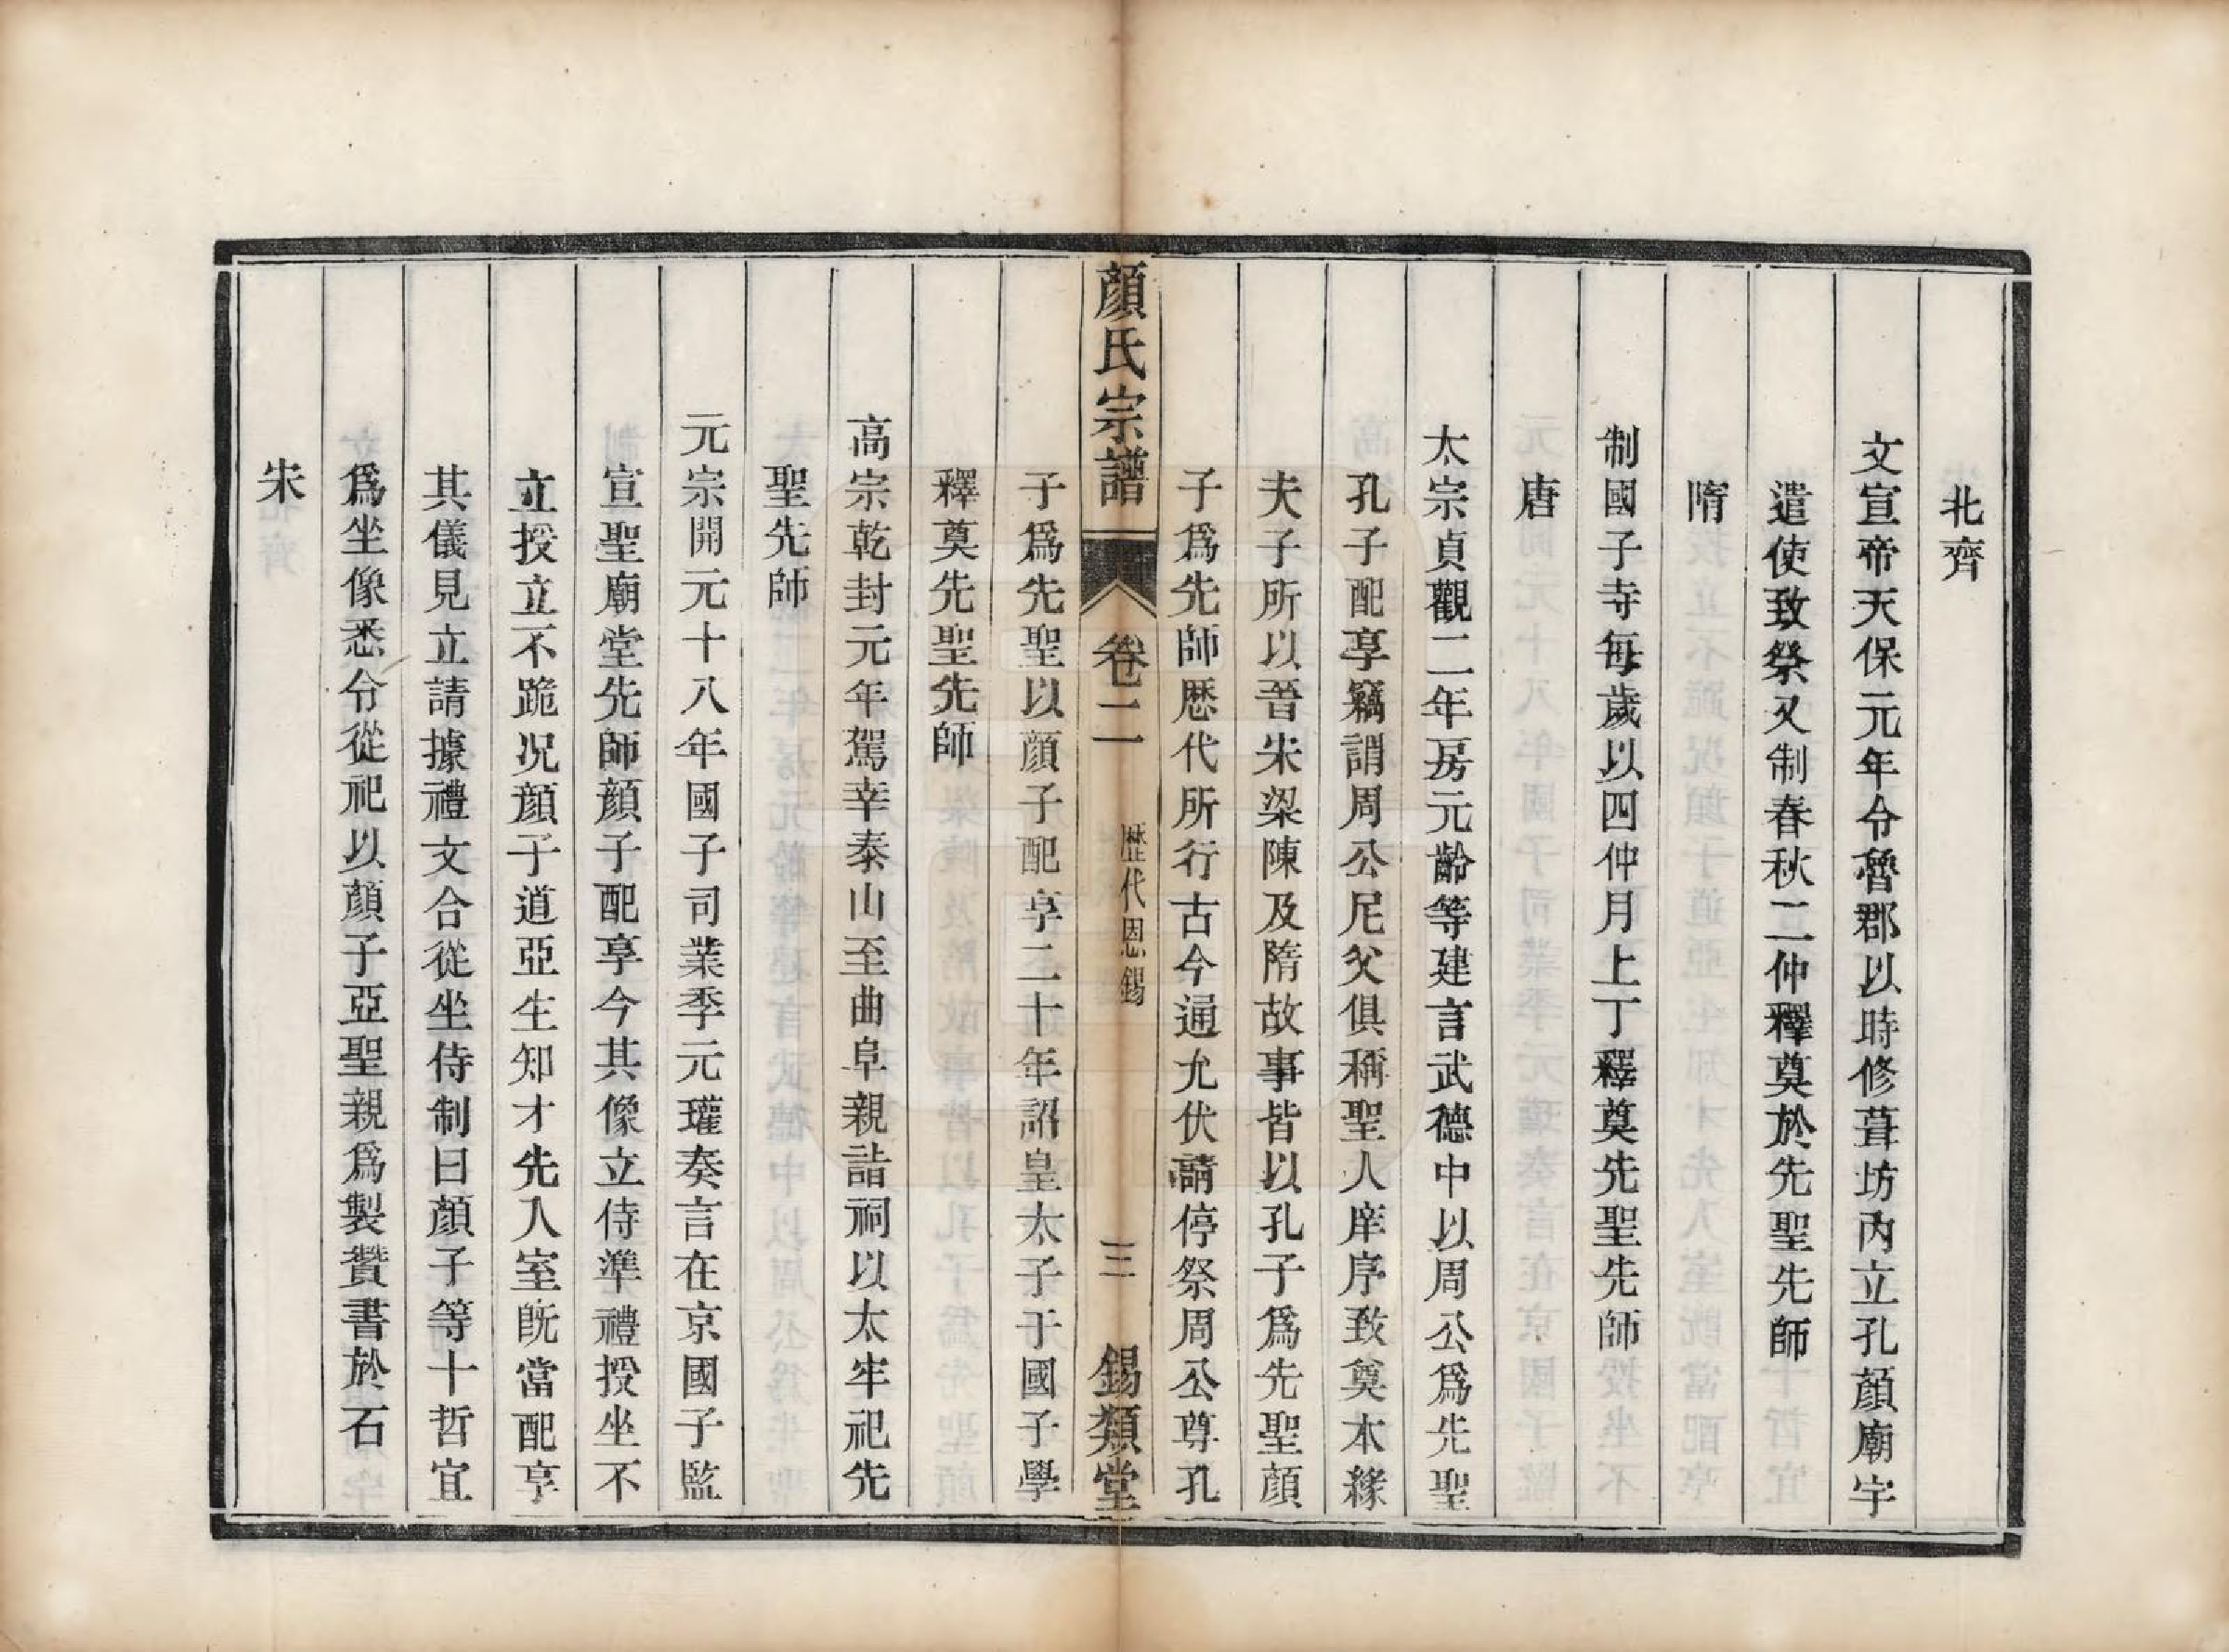 北齊
文宣帝天保元年令魯郡以時修葺坊內立孔顏廟宇
遣使致祭又制春秋二仲釋奠於先聖先師
隋
制國子寺每歲以四仲月上丁釋奠先聖先師
唐
太宗貞觀二年房元齡等建言武德中以周公爲先聖
孔子配享竊謂周公尼父俱稱聖人庠序致奠本緣
夫子所以晉宋梁陳及隋故事皆以孔子爲先聖顏
子爲先師歷代所行古今通允伏請停祭周公尊孔
顏氏宗譜 卷二 歷代恩錫 三 錫類堂
子爲先聖以顏子配享二十年詔皇太子于國子學
釋奠先聖先師
高宗乾封元年駕幸泰山至曲阜親詣祠以太牢祀先
聖先師
元宗開元十八年國子司業季元瓘奏言在京國子監
宣聖廟堂先師顏子配享今其像立侍準禮授坐不
立授立不跪况顏子道亞生知才先入室旣當配享
其儀見立請據禮文合從坐侍制曰顏子等十哲宜
爲坐像悉令從祀以顏子亞聖親爲製贊書於石
宋